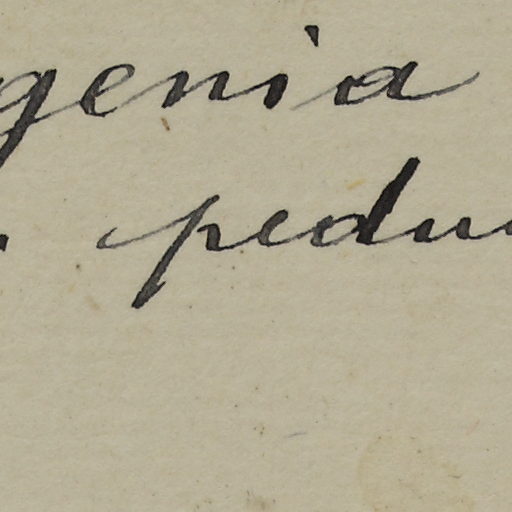 genia
. pedu